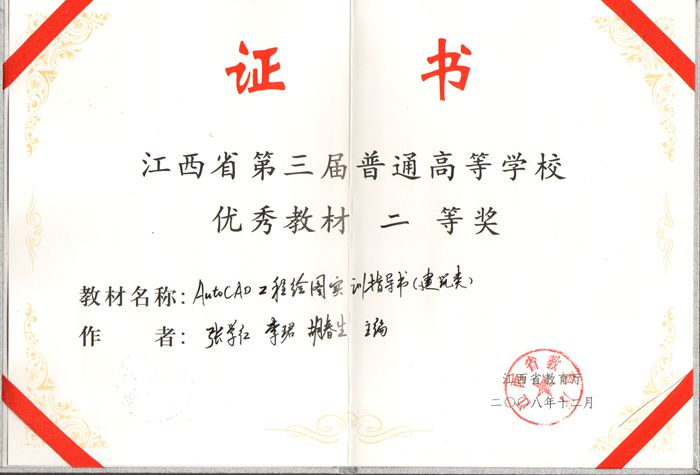 证书
江西省第三届普通高等学校
优秀教材 二 等奖
教材名称: AutoCAD工程绘图实训指导书(建筑类)
作 者: 张学红 李珺 胡春生 主编
江西省教育厅
二〇〇八年十二月
江西省教育厅